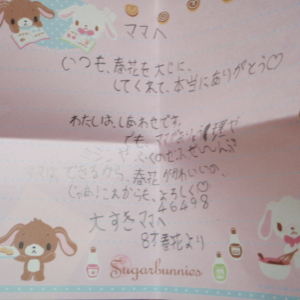 ママへ
いつも、春花を大じに、
してくれて、本当にありがとう♡
わたしは、しあわせです。
でも、
できるから、春花がかわいいの、
じゃあ!これからも、よろしく♡
46498
大すきママへ
8才春花より
Sugarbunnies